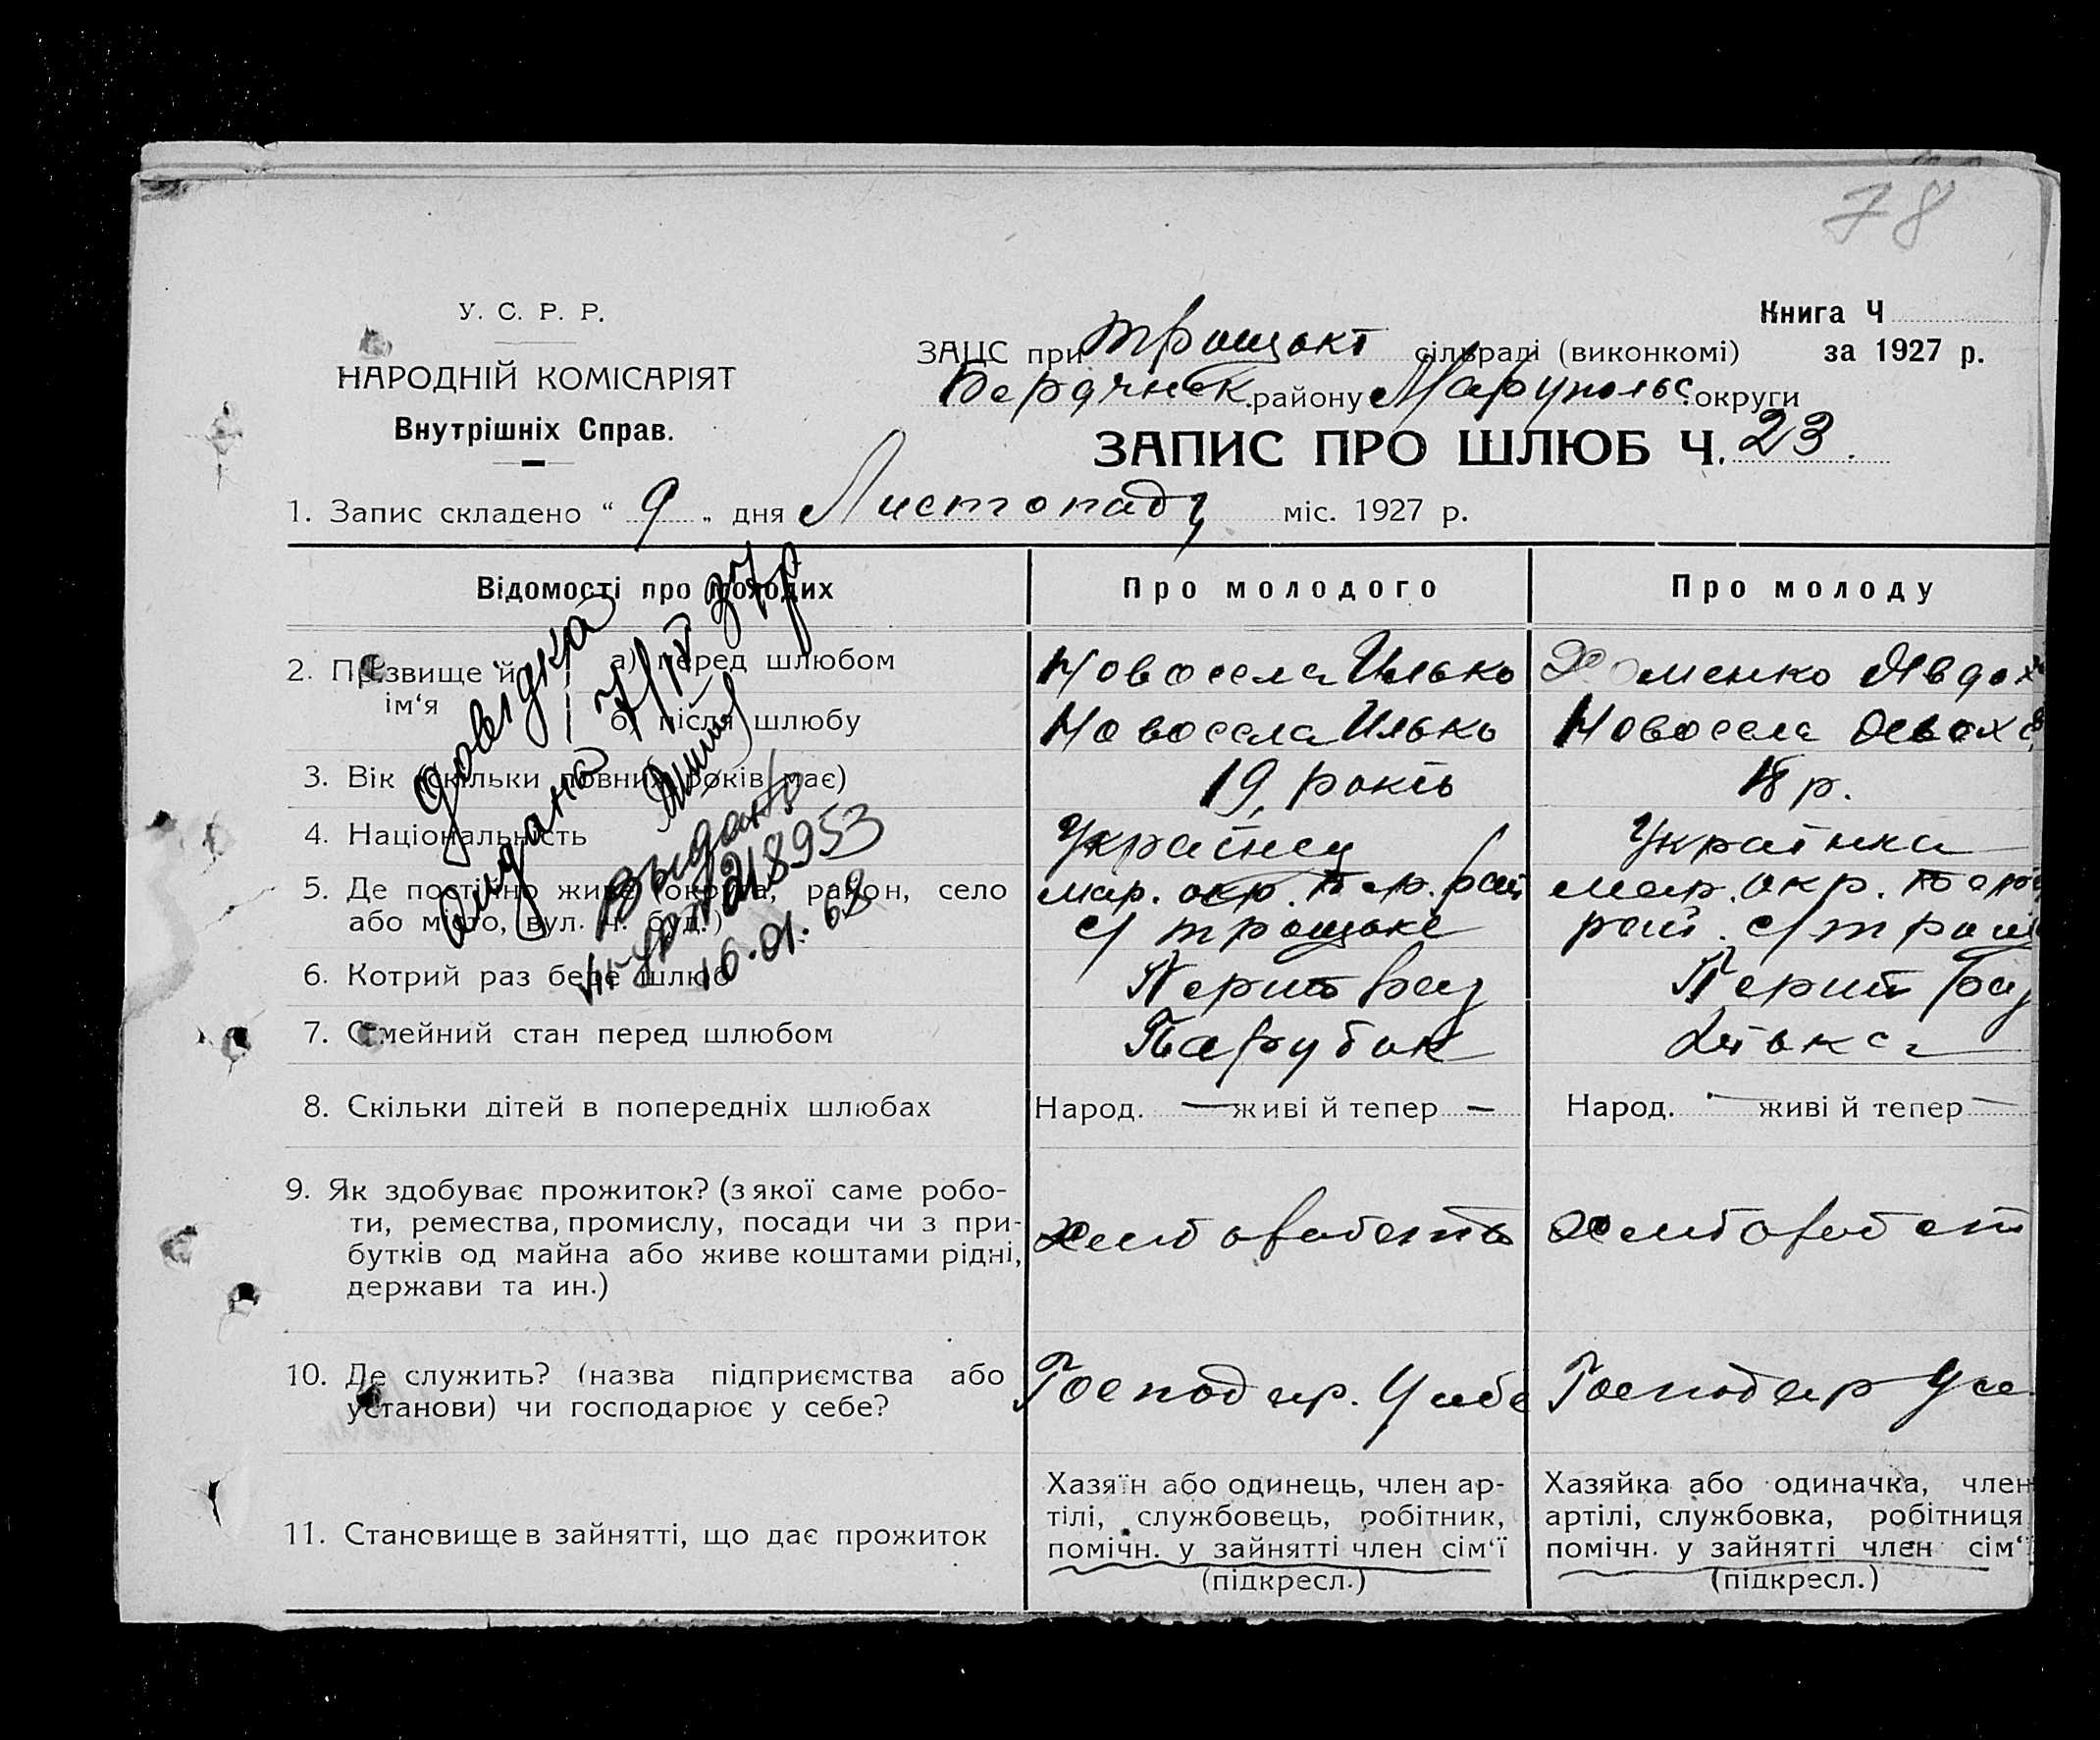 78
У. С. Р. Р.
НАРОДНІЙ КОМІСАРІЯТ
Внутрішніх Справ.
Книга Ч
за 1927 р.
ЗАЦС при Трощокт сільраді (виконкомі)
Бердянск. району Марупольс. округи
ЗАПИС ПРО ШЛЮБ Ч. 23.
1. Запис складено “ 9 „ дня Листопаду міс. 1927 р.
Відомості про молодих
Про молодого
Про молоду
2. Прізвище й ім‘я
а) перед шлюбом
Новосела Илько
Хоменко Явдох
б) після шлюбу
Новосела Илько
Новосела
3. Вік (скільки повних років має)
19, років
18 р.
4. Національність
Украінец
Украінка
5. Де постійно живе (округа, район, село
або місто, вул. ч. буд.)
мар. окр. Бер. рай
с/ трощоке
мар. окр. Бер
рай. с/ трощ
6. Котрий раз бере шлюб
Перший раз
Перший раз
7. Сімейний стан перед шлюбом
Парубок
Дівка
8. Скільки дітей в попередніх шлюбах
Народ. — живі й тепер —
Народ. — живі й тепер —
9. Як здобуває прожиток? (з якої саме робо-
ти, ремества, промислу, посади чи з при-
бутків од майна або живе коштами рідні,
держави та ин.)
10. Де служить? (назва підприємства або
установи) чи господарює у себе?
Господар. У себе
Господар У се
11. Становище в зайнятті, що дає прожиток
Хазяїн або одинець, член ар-
тілі, службовець, робітник,
помічн. у зайнятті член сім‘ї
(підкресл.)
Хазяйка або одиначка, член
артілі, службовка, робітниця
помічн. у зайнятті член сім‘ї
(підкресл.)
Довідка
видана 7/IV 37р
Выдано
218953
16.01.68